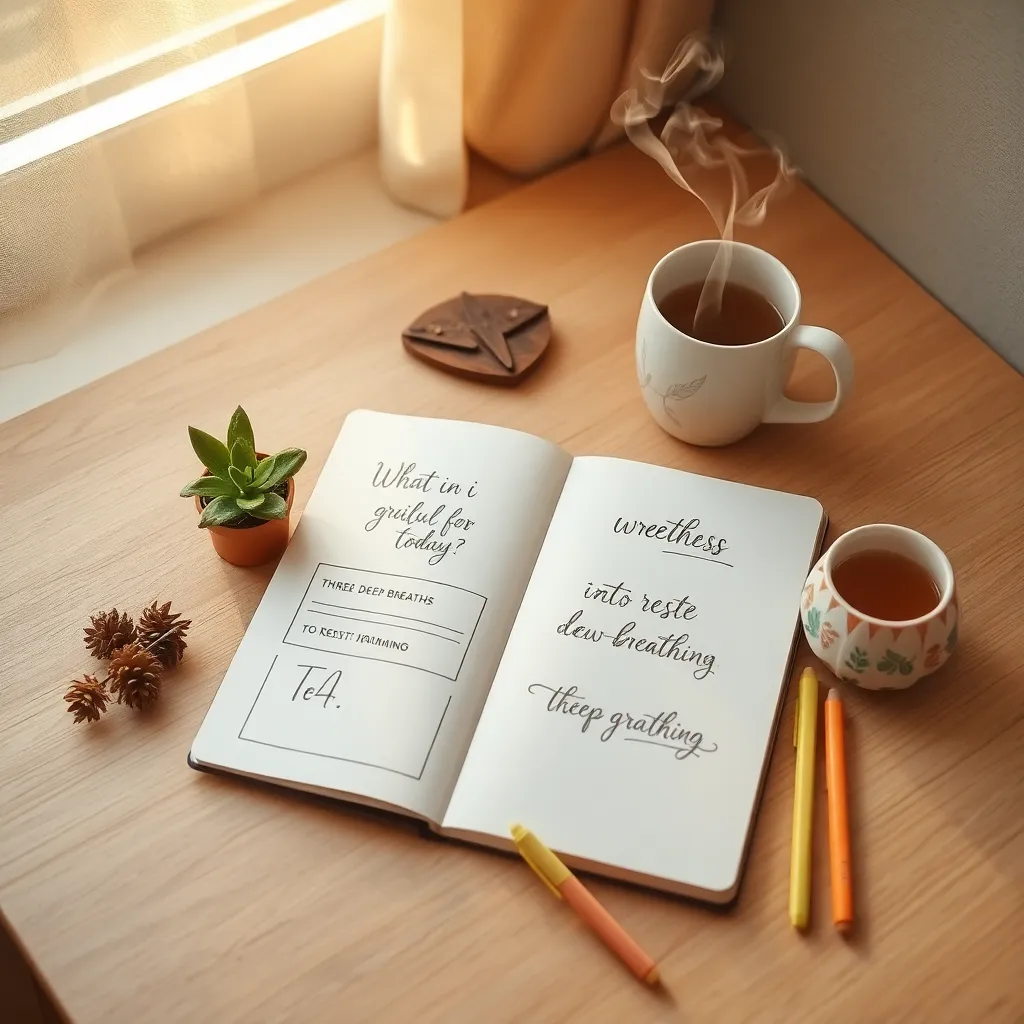 What in i
gruiful for
today?
THREE DEEP BREATHS
TO RESTY
TeA.
wreethess
into reste
dew-breathing
theep grathing